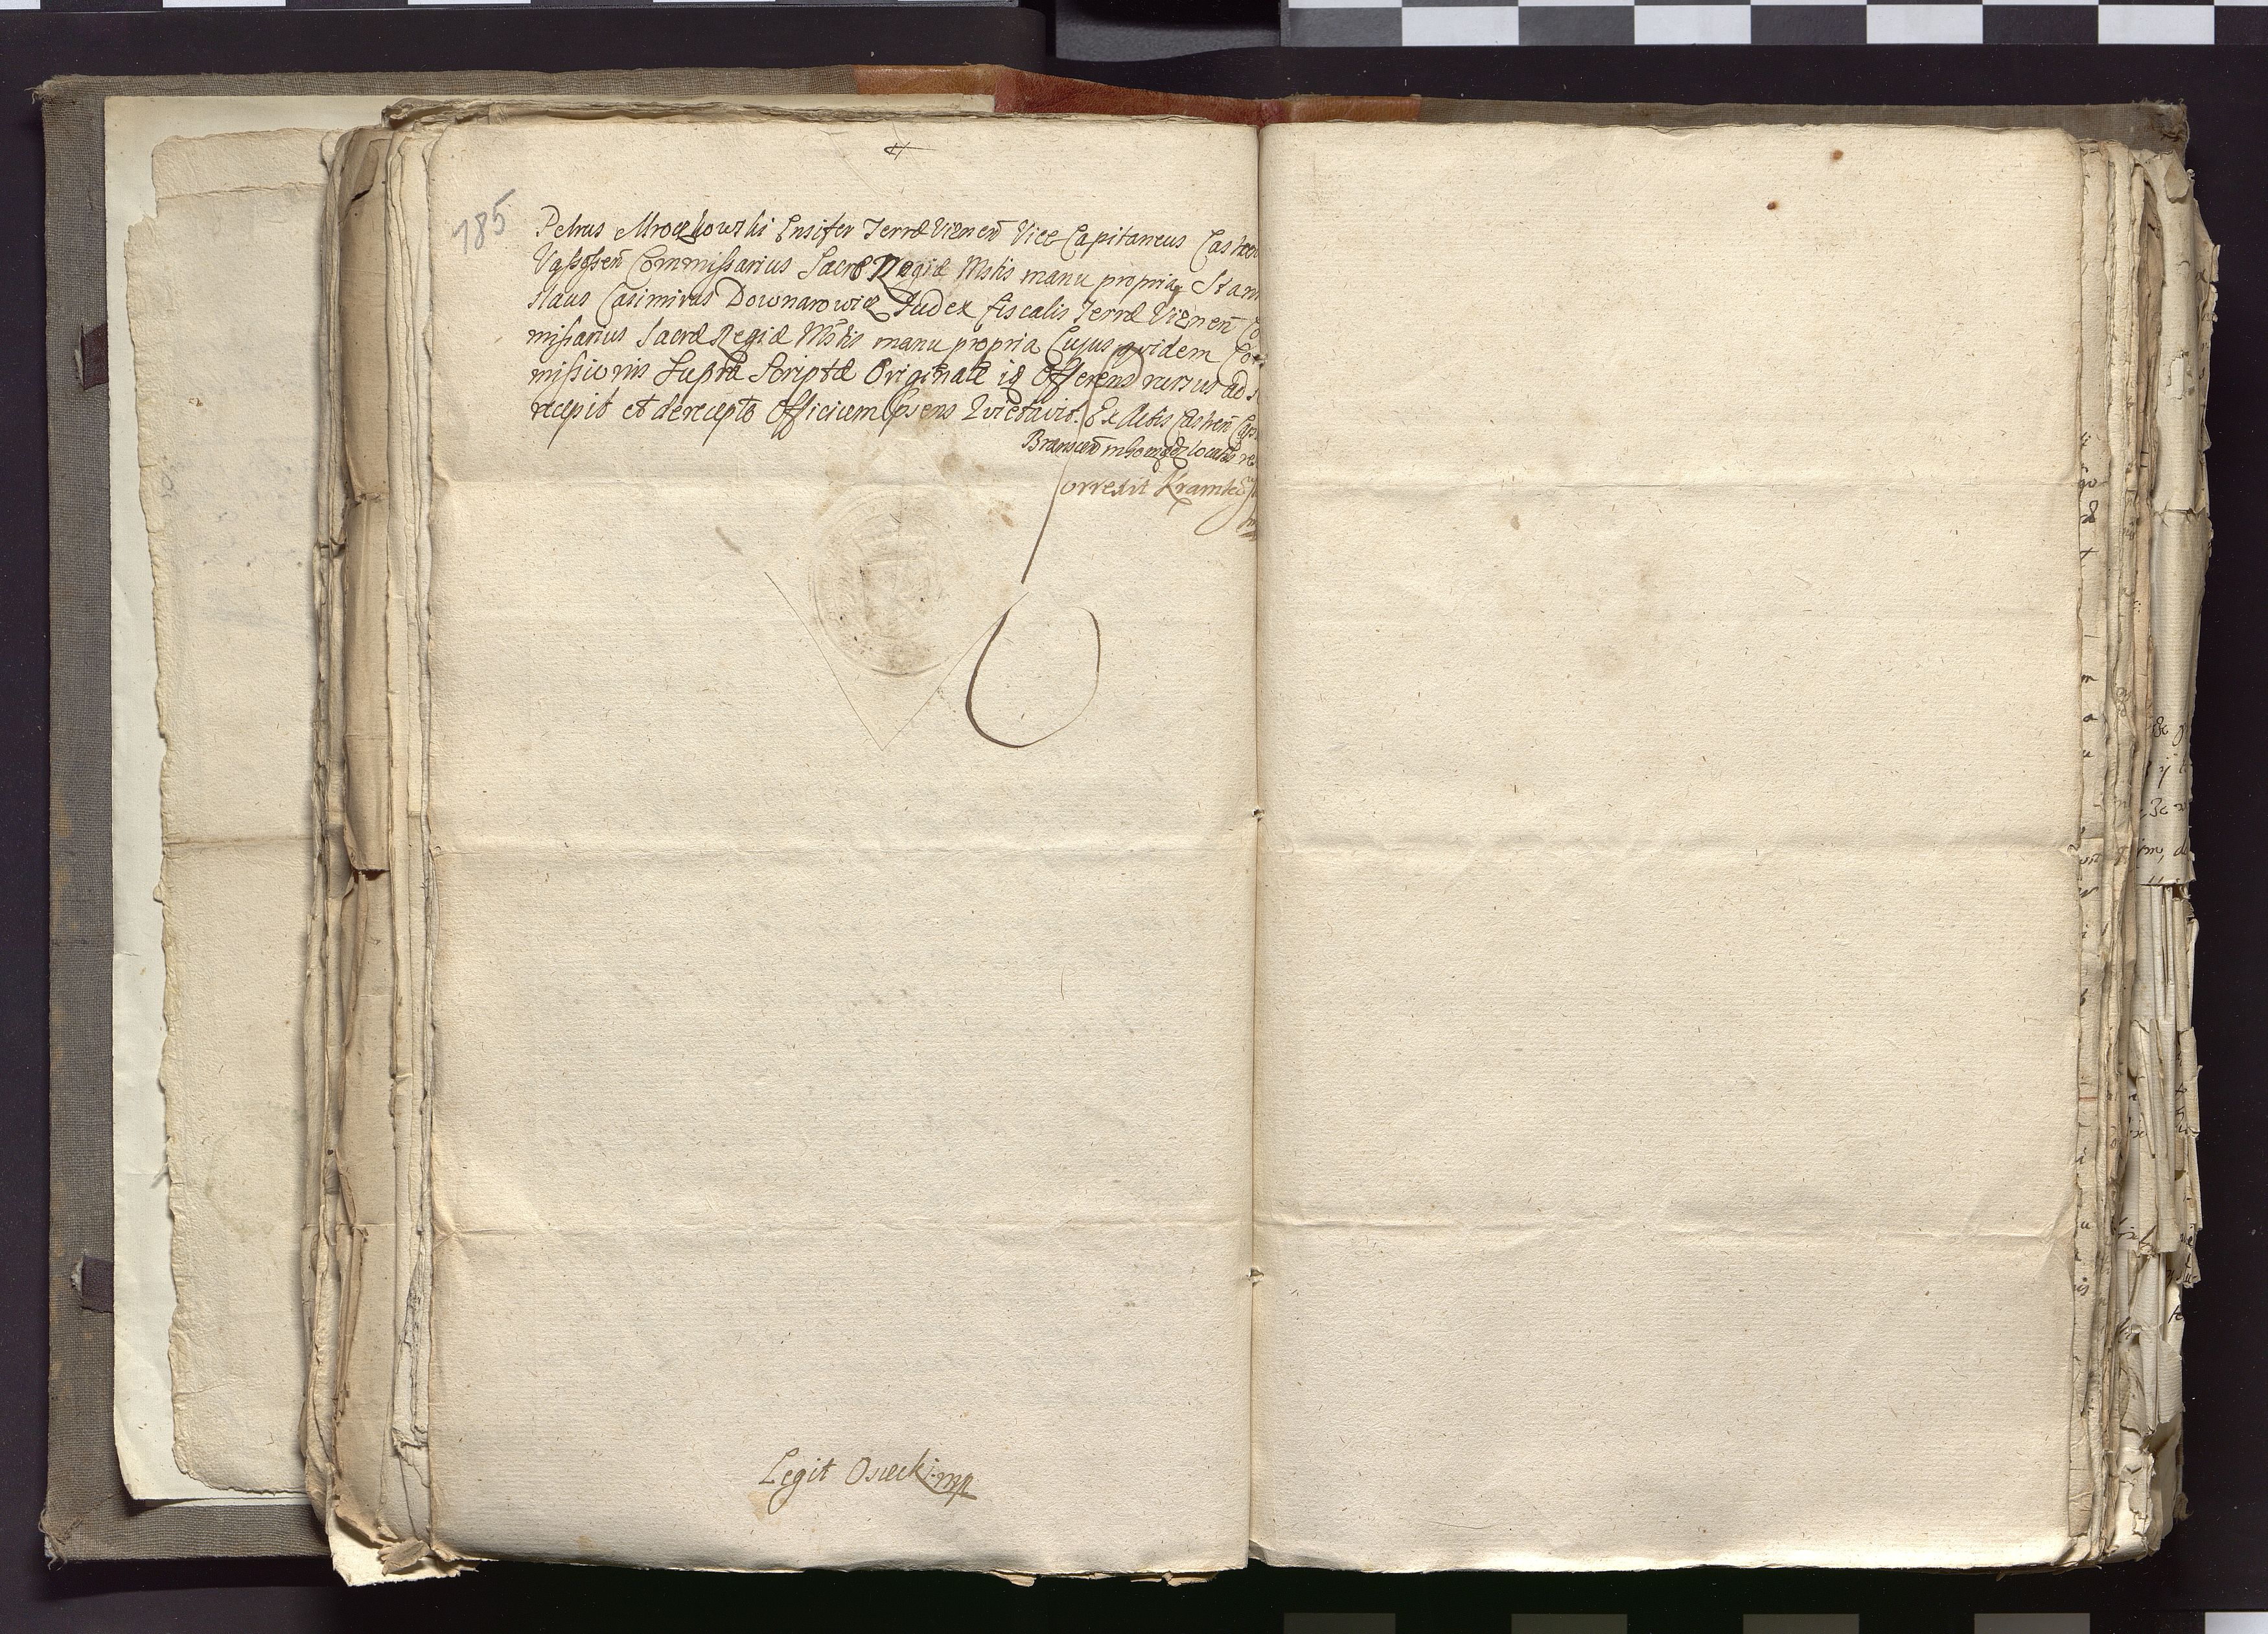 185
Petrus Mroczkowski Ensifer Terræ Viznen̄ Vice Capitaneus Castren
Commissarius Sacræ Regiæ Mstis manu propria Stani
slaus Casimirus Downarowicz Judex fiscalis Terræ Viznen̄ Co
missarius Sacræ Regiæ Mstis manu propria Cujus quidem Com
missionis Supra Scriptæ Originale is Offerens rursus ad s
recepit et de recepto Officium Quietavit. Ex Actis Castren̄ Cap
Branscen̄
orrexit
Legit Osiecki mp